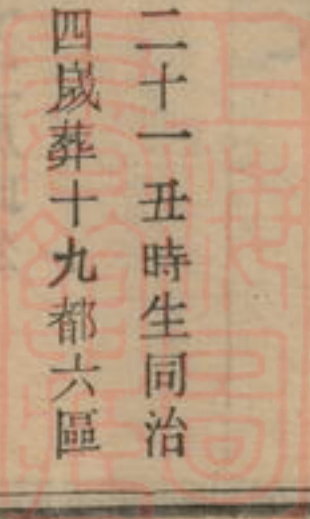 二十一丑時生同治
四歲葬十九都六區